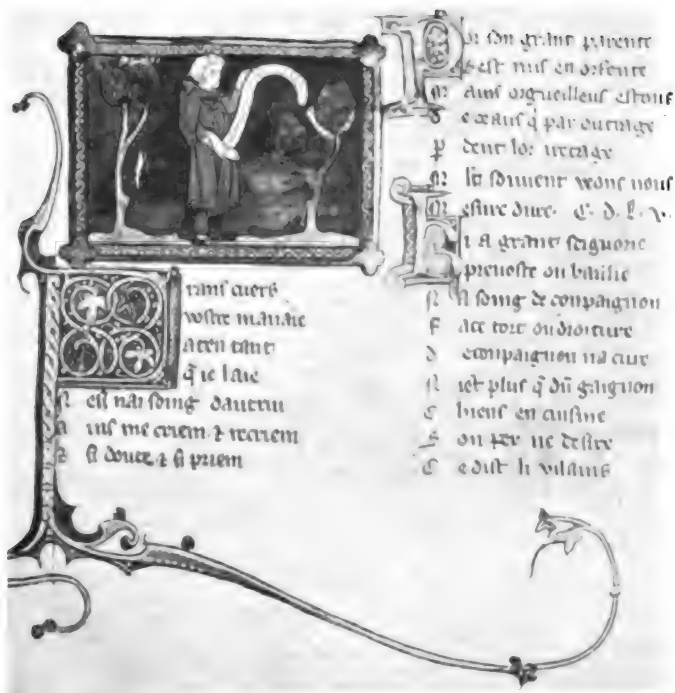 rans cuers
vostre manaie
aten tant
q̃ ie laie
N est nai soing dautrui
A ins me criem ⁊ recriem
E si dout ⁊ si priem
Por son grant parente
S est mis en orfente
M ains orgueilleus estons
d e ceaus q̃ par outrage
p dent lor iretage
M lt souvent veons nous
M esure dure. C. d. l. v.
Ki a grant seignorie
prevoste ou baillie
N a soing de conpaignon
F ace tort ou droiture
d e conpaignon na cure
N ient plus q̃ dũ gaignon
C hiens en cuisine
S on per ne desire
C e dist li vilains